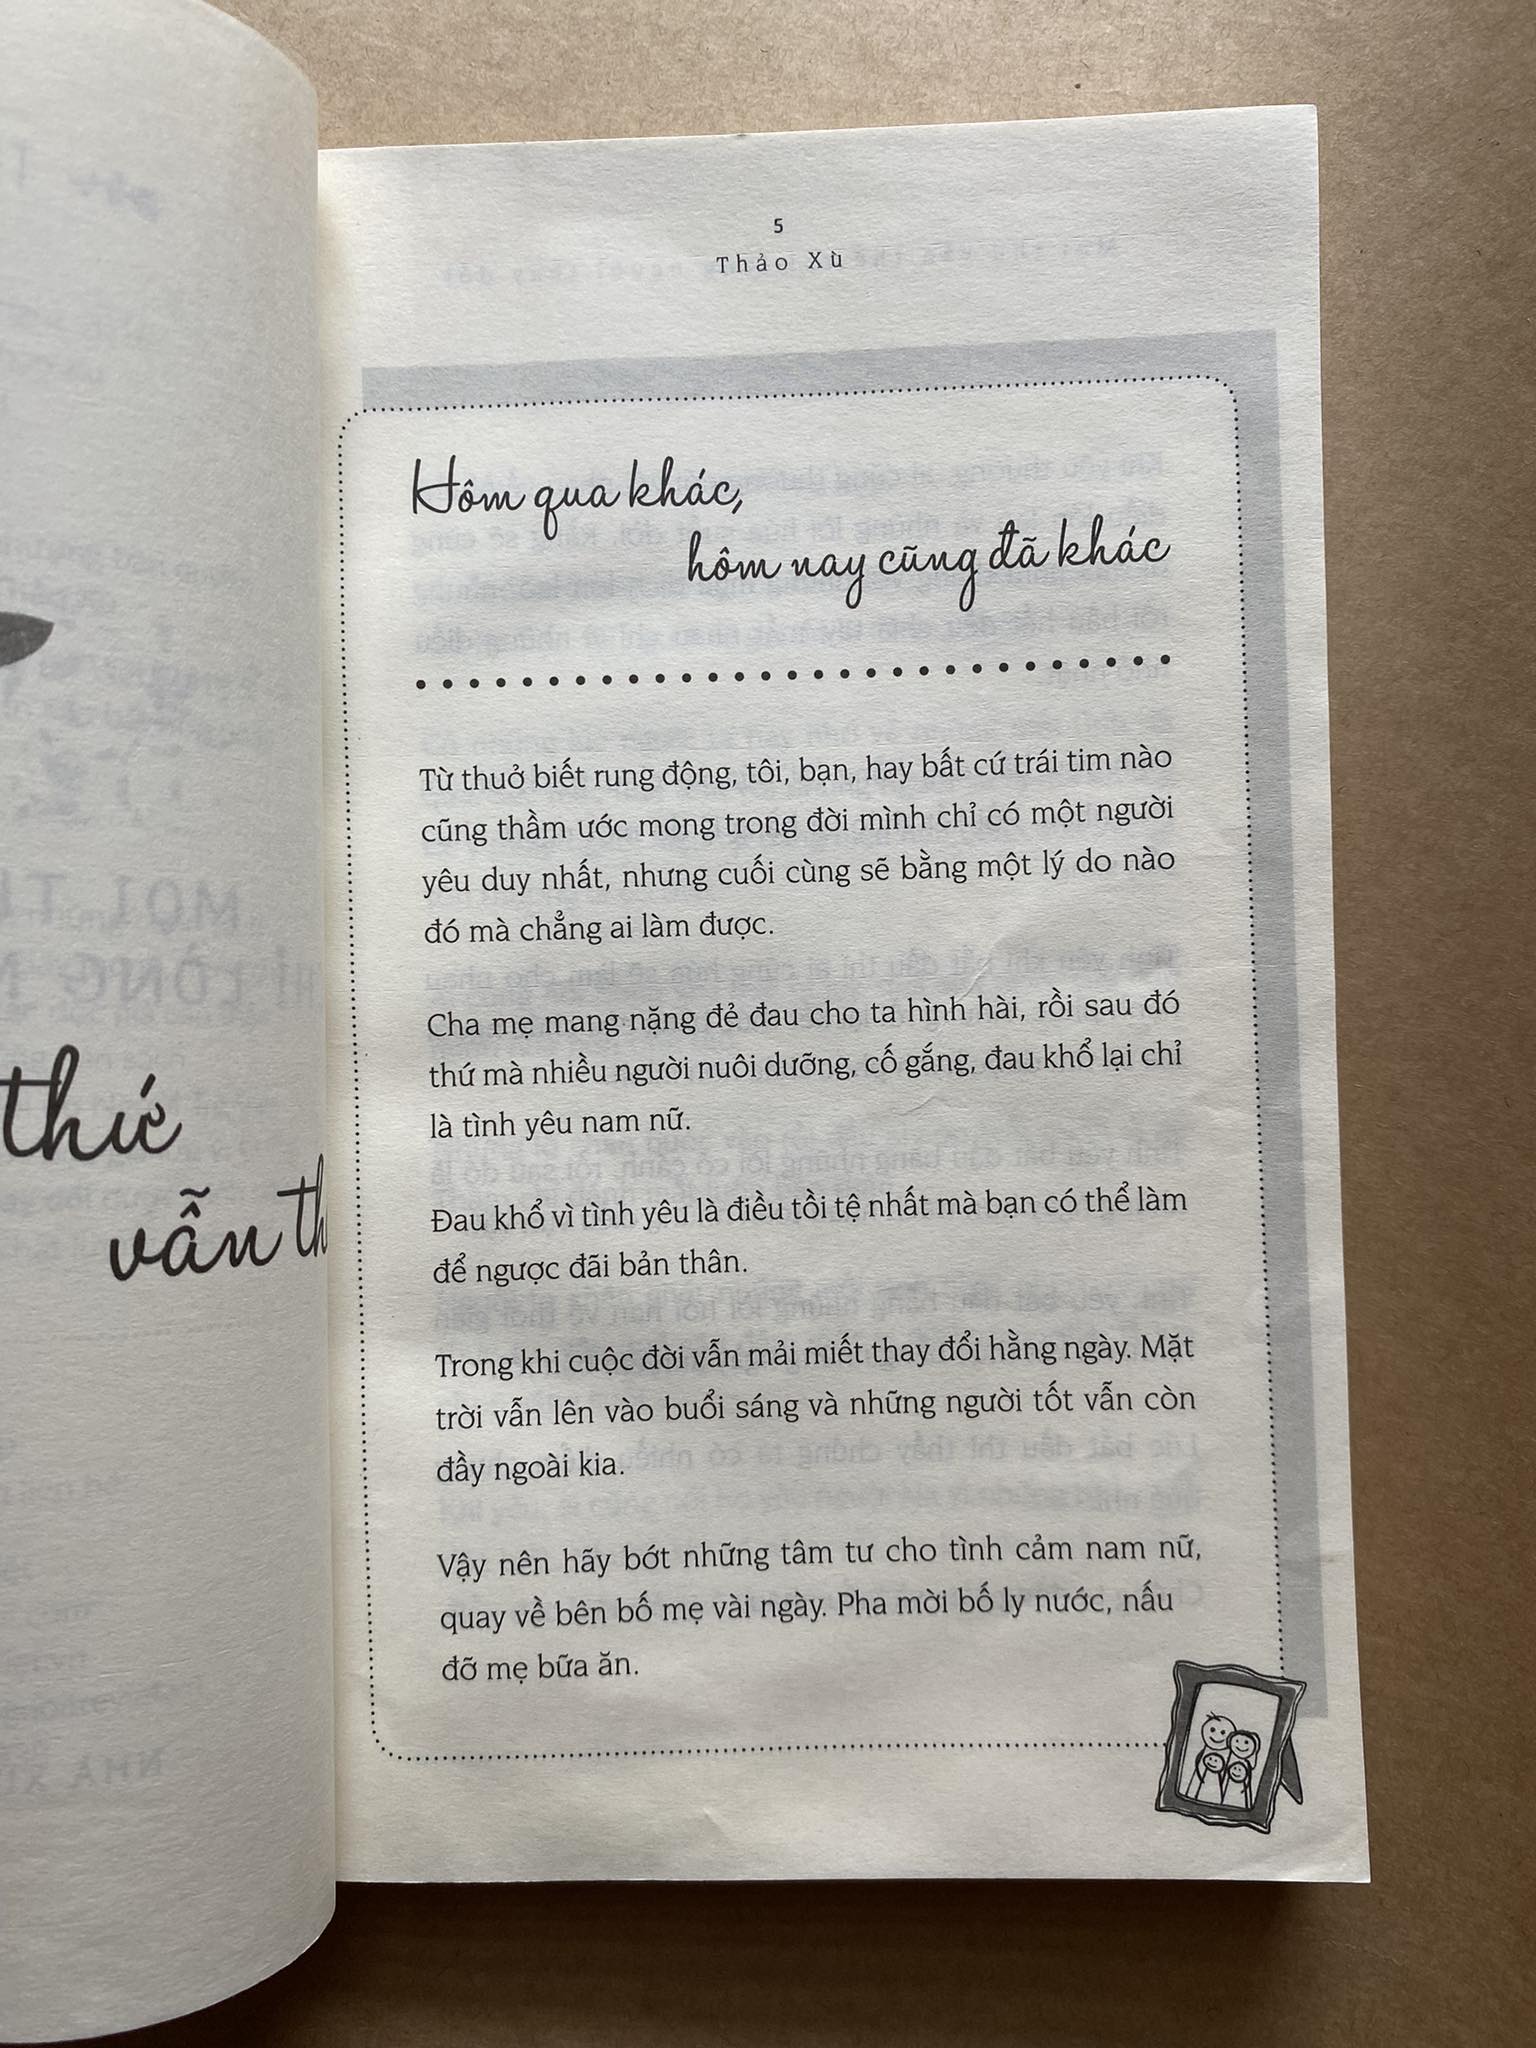 thức
vẫn
5
Thảo Xù
Hôm qua khác,
hôm nay cũng đã khác
Từ thuở biết rung động, tôi, bạn, hay bất cứ trái tim nào
cũng thầm ước mong trong đời mình chỉ có một người
yêu duy nhất, nhưng cuối cùng sẽ bằng một lý do nào
đó mà chẳng ai làm được.
Cha mẹ mang nặng đẻ đau cho ta hình hài, rồi sau đó
thứ mà nhiều người nuôi dưỡng, cố gắng, đau khổ lại chỉ
là tình yêu nam nữ.
Đau khổ vì tình yêu là điều tồi tệ nhất mà bạn có thể làm
để ngược đãi bản thân.
Trong khi cuộc đời vẫn mải miết thay đổi hằng ngày. Mặt
trời vẫn lên vào buổi sáng và những người tốt vẫn còn
đầy ngoài kia.
Vậy nên hãy bớt những tâm tư cho tình cảm nam nữ,
quay về bên bố mẹ vài ngày. Pha mời bố ly nước, nấu
đỡ mẹ bữa ăn.